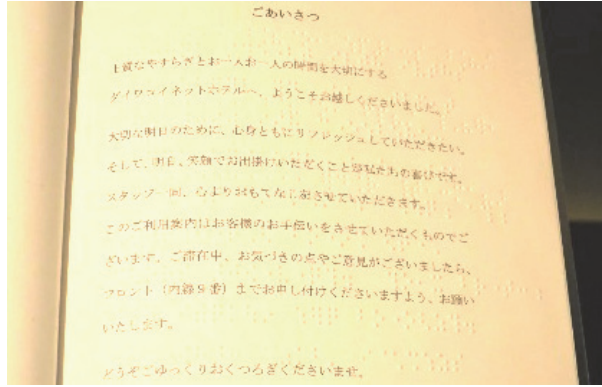 ごあいさつ
上質なやすらぎとお一人お一人の時間を大切にする
ダイワロイネットホテルへ、ようこそお越しくださいました。
大切な明日のために、心身ともにリフレッシュしていただきたい。
そして、明日、笑顔でお出掛けいただくことが私たちの喜びです。
スタッフ一同、心よりおもてなしをさせていただきます。
このご利用案内はお客様のお手伝いをさせていただくものでご
ざいます。ご滞在中、お気づきの点やご意見がございましたら、
フロント（内線９番）までお申し付けくださいますよう、お願い
いたします。
どうぞごゆっくりおくつろぎくださいませ。